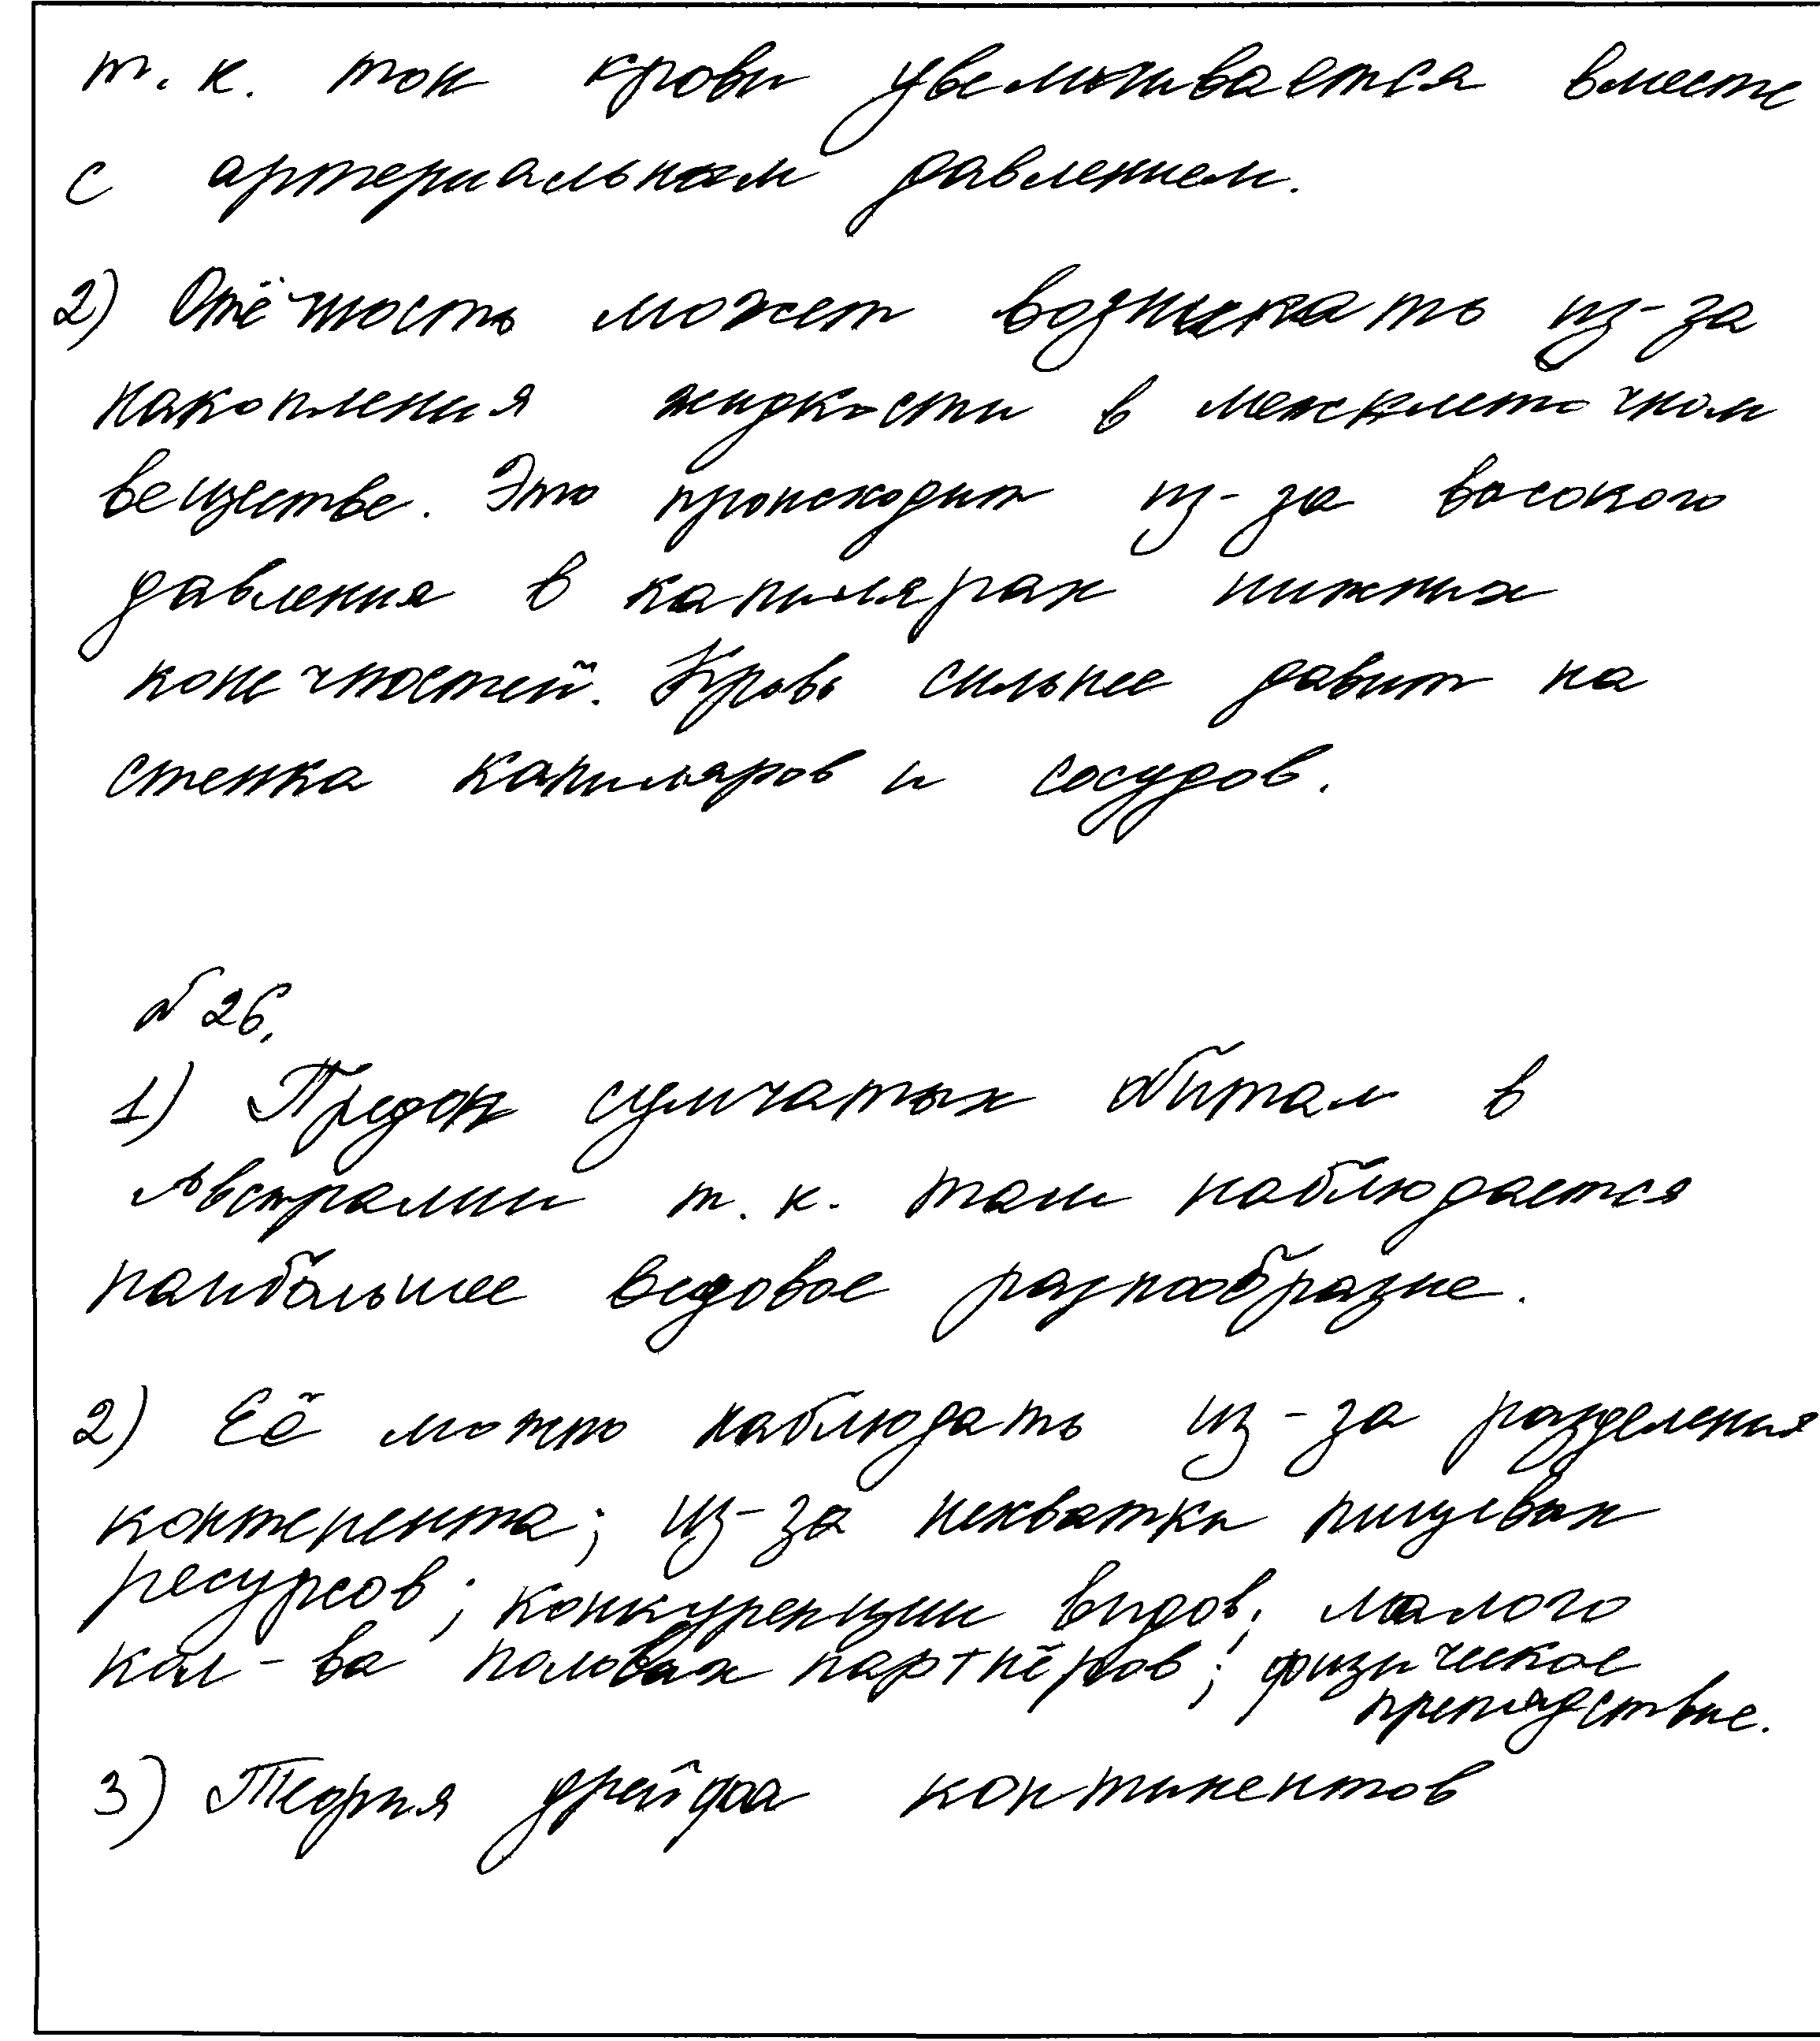 т. к. ток крови увеличивается вместе
с артериальным давлением.
2) Отёчность может возникать из-за
накопления жидкости в межклеточном
веществе. Это происходит из-за высокого
давления в капилярах нижних
конечностей. Кровь сильнее давит на
стенка капиляров и сосудов.
№ 26.
1) Предок сумчатых обитал в
Австралии т. к. там наблюдается
наибольшее видовое разнообразие.
2) Её можно наблюдать из-за разделения
контенента; из-за нехватки пищевых
ресурсов; конкуренции видов; малого
кол-ва половых партнёров; физическое
препядствие.
3) Теория дрейфа континентов